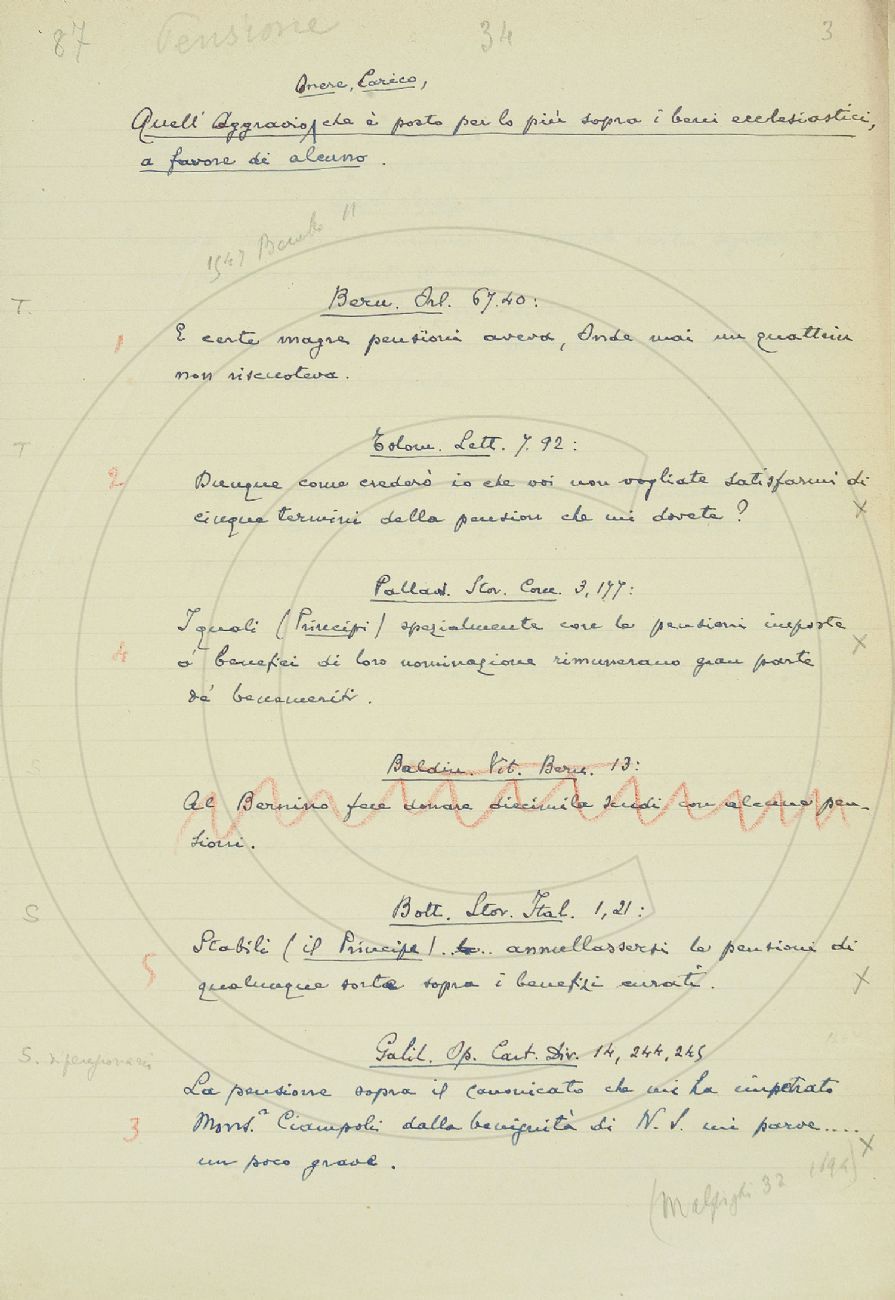 87 Pensione 34 3
Onere, Carico,
Quell' Aggravio, che è posto per lo più sopra i beni ecclesiastici,
a favore di alcuno.
1547 11
Bern. Orl. 67.40:
T.
1 E certe magre pensioni aveva, Onde mai un quattrin
non riscuoteva.
T Tolom. Lett. 7. 92:
2 Dunque come crederò io che voi non vogliate satisfarmi di
cinque termini della pension che mi dovete? X
Pallad. Stor. Conc. 3, 177:
I quali (Principi) spezialmente con le pensioni imposte
4 a' benefici di loro nominazione rimunerano gran parte X
de' benemeriti.
S Baldin. Vit. Bern. 13:
Al Bernino fece donare diecimila scudi con alcune pen-
sioni.
S Bott. Stor. Ital. 1, 21:
Stabilì (il Principe) .... annullassersi le pensioni di
5 qualunque sorte sopra i benefizi curati. X
Galil. Op. Cart. Div. 14, 244, 245
S. di pensionari
La pensione sopra il canonicato che mi ha impetrato
3 Mons.r Ciampoli dalla benignità di N. S. mi parve....
un poco grave. X
(Malpighi 32 1694)